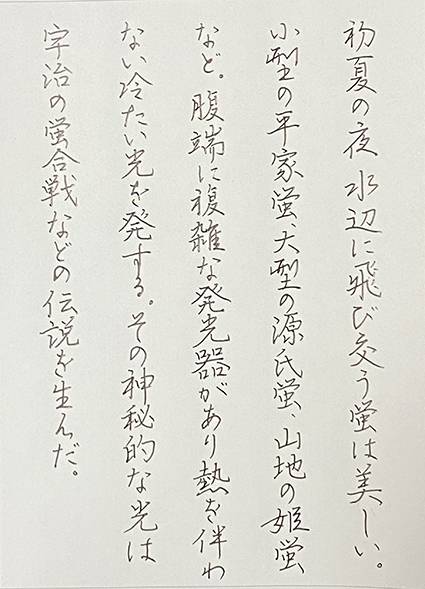 初夏の夜水辺に飛び交う蛍は美しい。
小型の平家蛍、大型の源氏蛍、山地の姫蛍、
など。腹端に複雑な発光器があり熱を伴わ
ない冷たい光を発する。その神秘的な光は
宇治の蛍合戦などの伝説を生んだ。